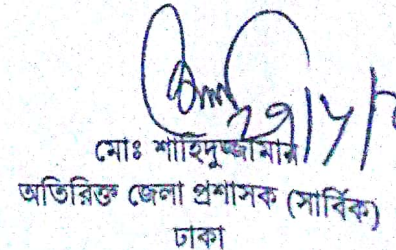 মোঃ শাহিদুজ্জামান
অতিরিক্ত জেলা প্রশাসক (সার্বিক)
ঢাকা